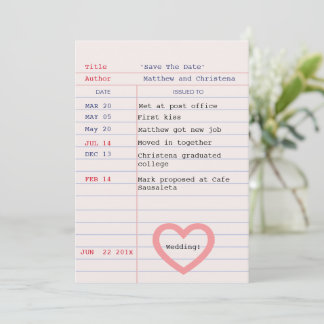 Title "Save The Date"
Author Matthew and Christena
DATE ISSUED TO
MAR 20 Met at post office
MAY 05 First kiss
May 20 Matthew got new job
JUL 14 Moved in together
DEC 13 Christena graduated
college
FEB 14 Mark proposed at Cafe
Sausaleta
Wedding!
JUN 22 201X